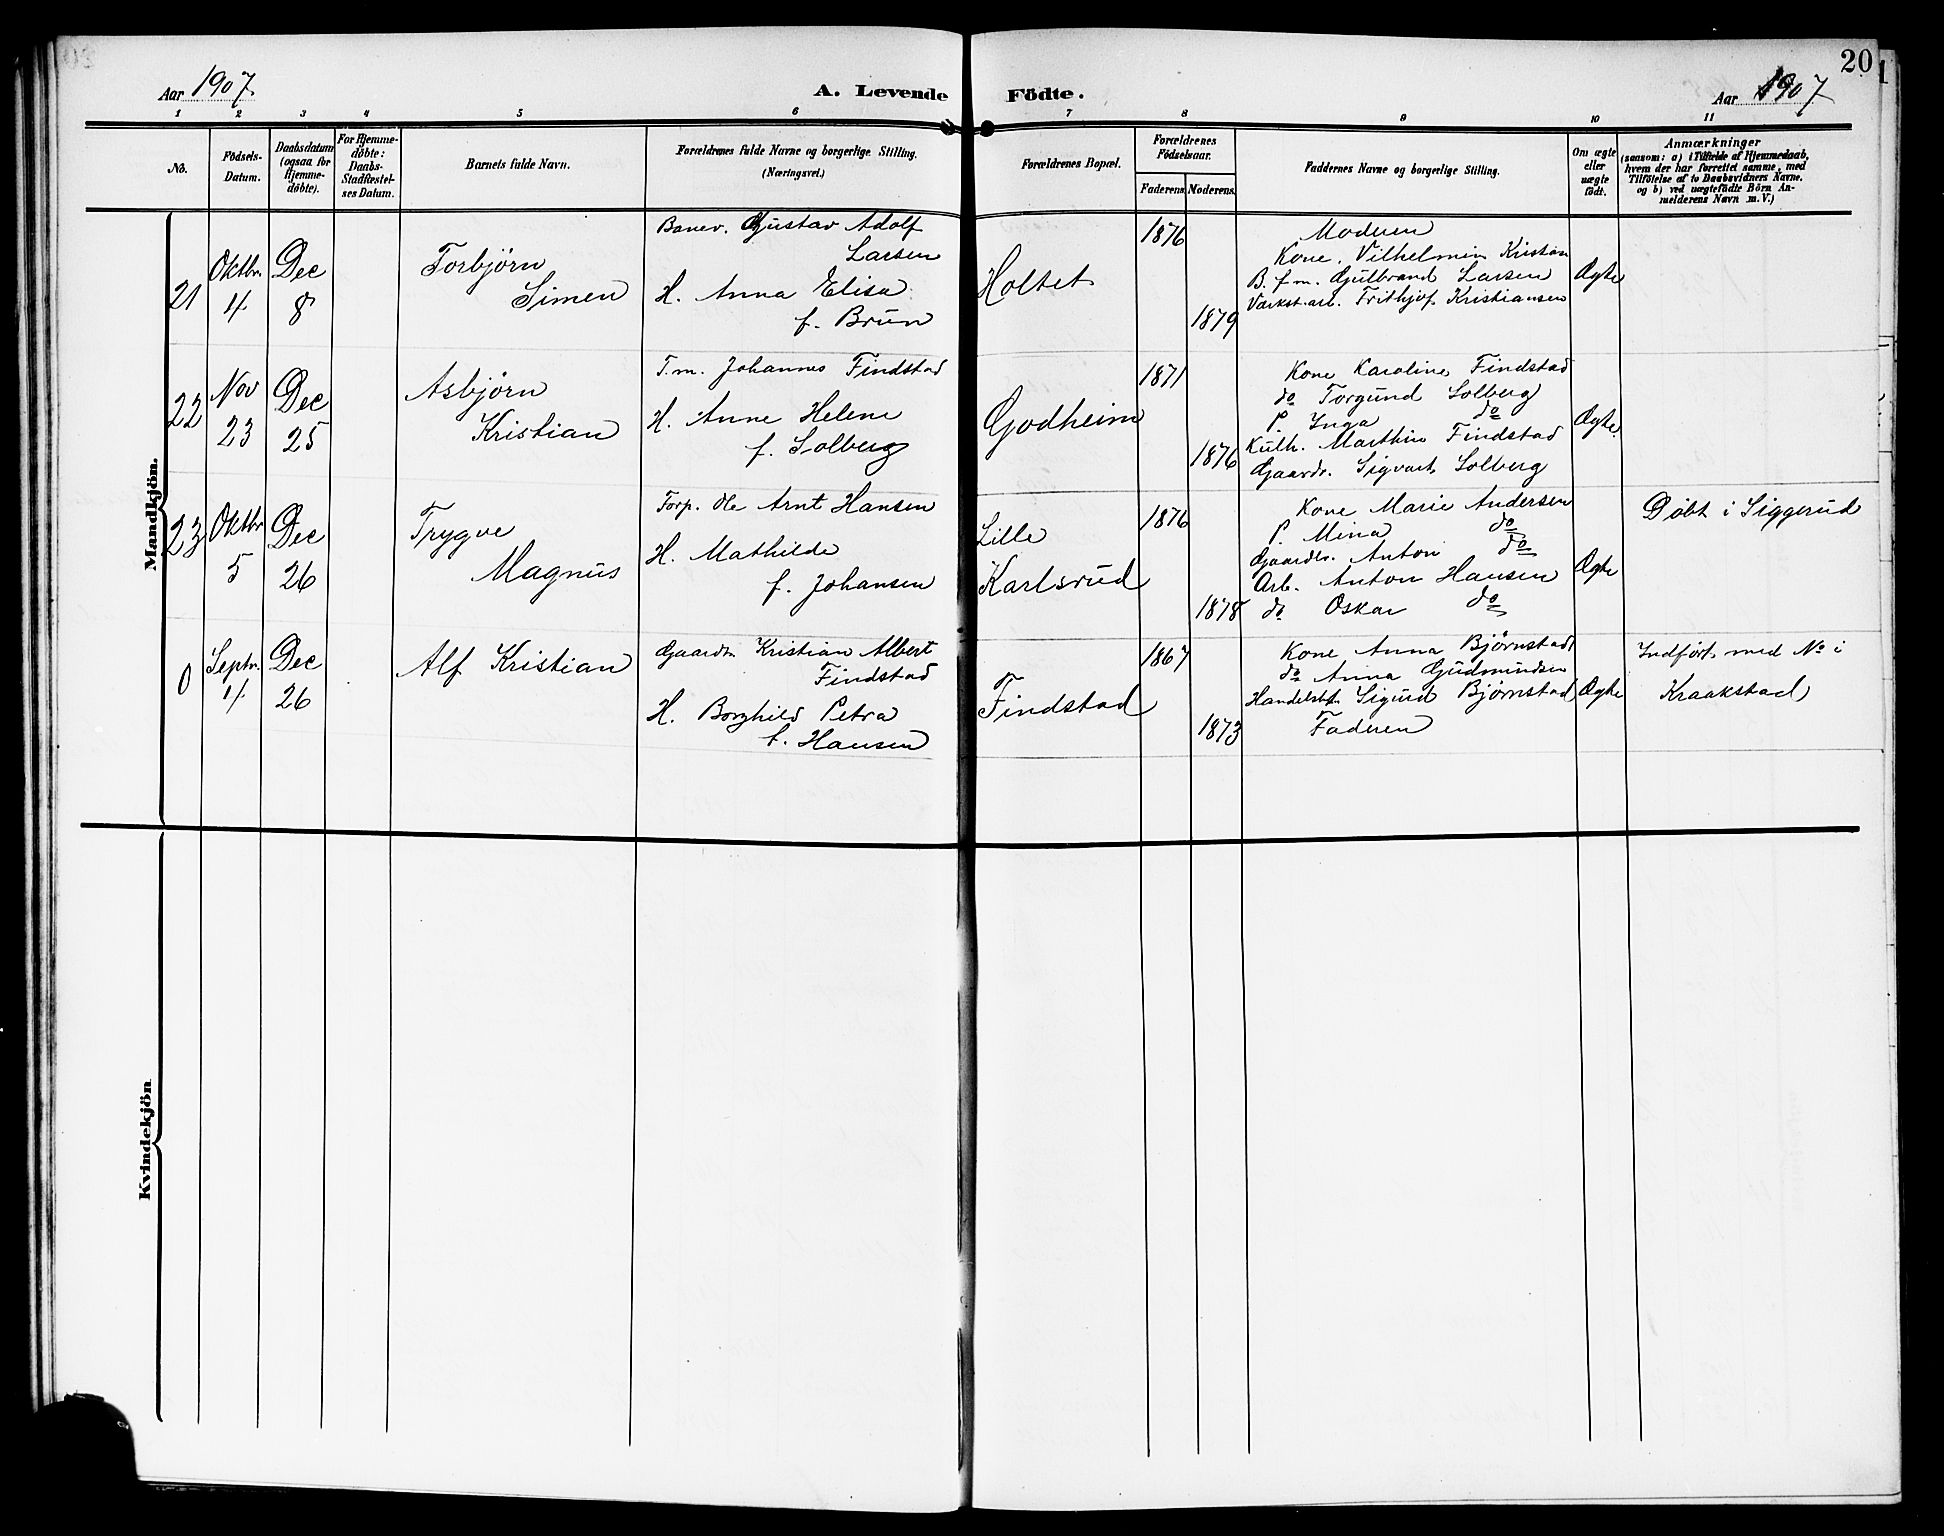 Aar 1907
A. Levende Födte.
20
Aar 1907
1 2 3 4 5 6 7 8 9 10 11
No.
Födsels-
Datum.
Daabsdatum
(ogsaa for
Hjemme-
døbte).
For Hjemme-
døbte:
Daabs-
Stadfæstel-
ses Datum.
Barnets fulde Navn.
Forældrenes fulde Navne og borgerlige Stilling.
(Næringsvei.)
Forældrenes Bopæl.
Forældrenes
Födselsaar.
Faderens. Moderens.
Faddernes Navne og borgerlige Stilling.
Om ægte
eller
uægte
født.
Anmærkninger
(saasom: a) i Tilfælde af Hjemmedaab,
hvem der har forrettet samme, med
Tilføielse af to Daabsvidners Navne.
og b) ved uægtefødte Börn An-
melderens Navn m. V.)
Mandkjön.
21
Oktbr.
4
Dec
8
Torbjörn
Simen
Banev. Gustav Adolf
Larsen
H. Anna Elisa
f. Brun
Holtet
1876
1879
Moderen
Kone. Vilhelmin Kristian
B. f. m. Gulbrand Larsen
Værkst. arb. Frithjof Kristiansen
Ægte
22
Nov
23
Dec
25
Asbjörn
Kristian
T. m. Johannes Findstad
H. Anne Helene
f. Solberg
Godheim
1871
1876
Kone Karoline Findstad
do Torgund Solberg
P. Inga do
Kulh. Marthin Findstad
Gaardbr. Sigvart Solberg
Ægte.
23
Oktbr
5
Dec
26
Trygve
Magnus
Forp. Ole Arnt Hansen
H. Mathilde
f. Johansen
Lille
Karlsrud
1876
1878
Kone Marie Andersen
P. Mina do
Gaardbr. Anton do
Arb. Anton Hansen
do Oskar do
Ægte
Döbt i Siggerud
0
Septr.
4
Dec
26
Alf Kristian
Gaardbr. Kristian Albert
Findstad
H. Borghild Petra
f. Hansen
Findstad
1867
1873
Kone Anna Bjørnstad
do Anna Gudmundsen
Handelsbt. Sigurd Bjørnstad
Faderen
Ægte
Indført med No i
Kraakstad
Kvindekjön